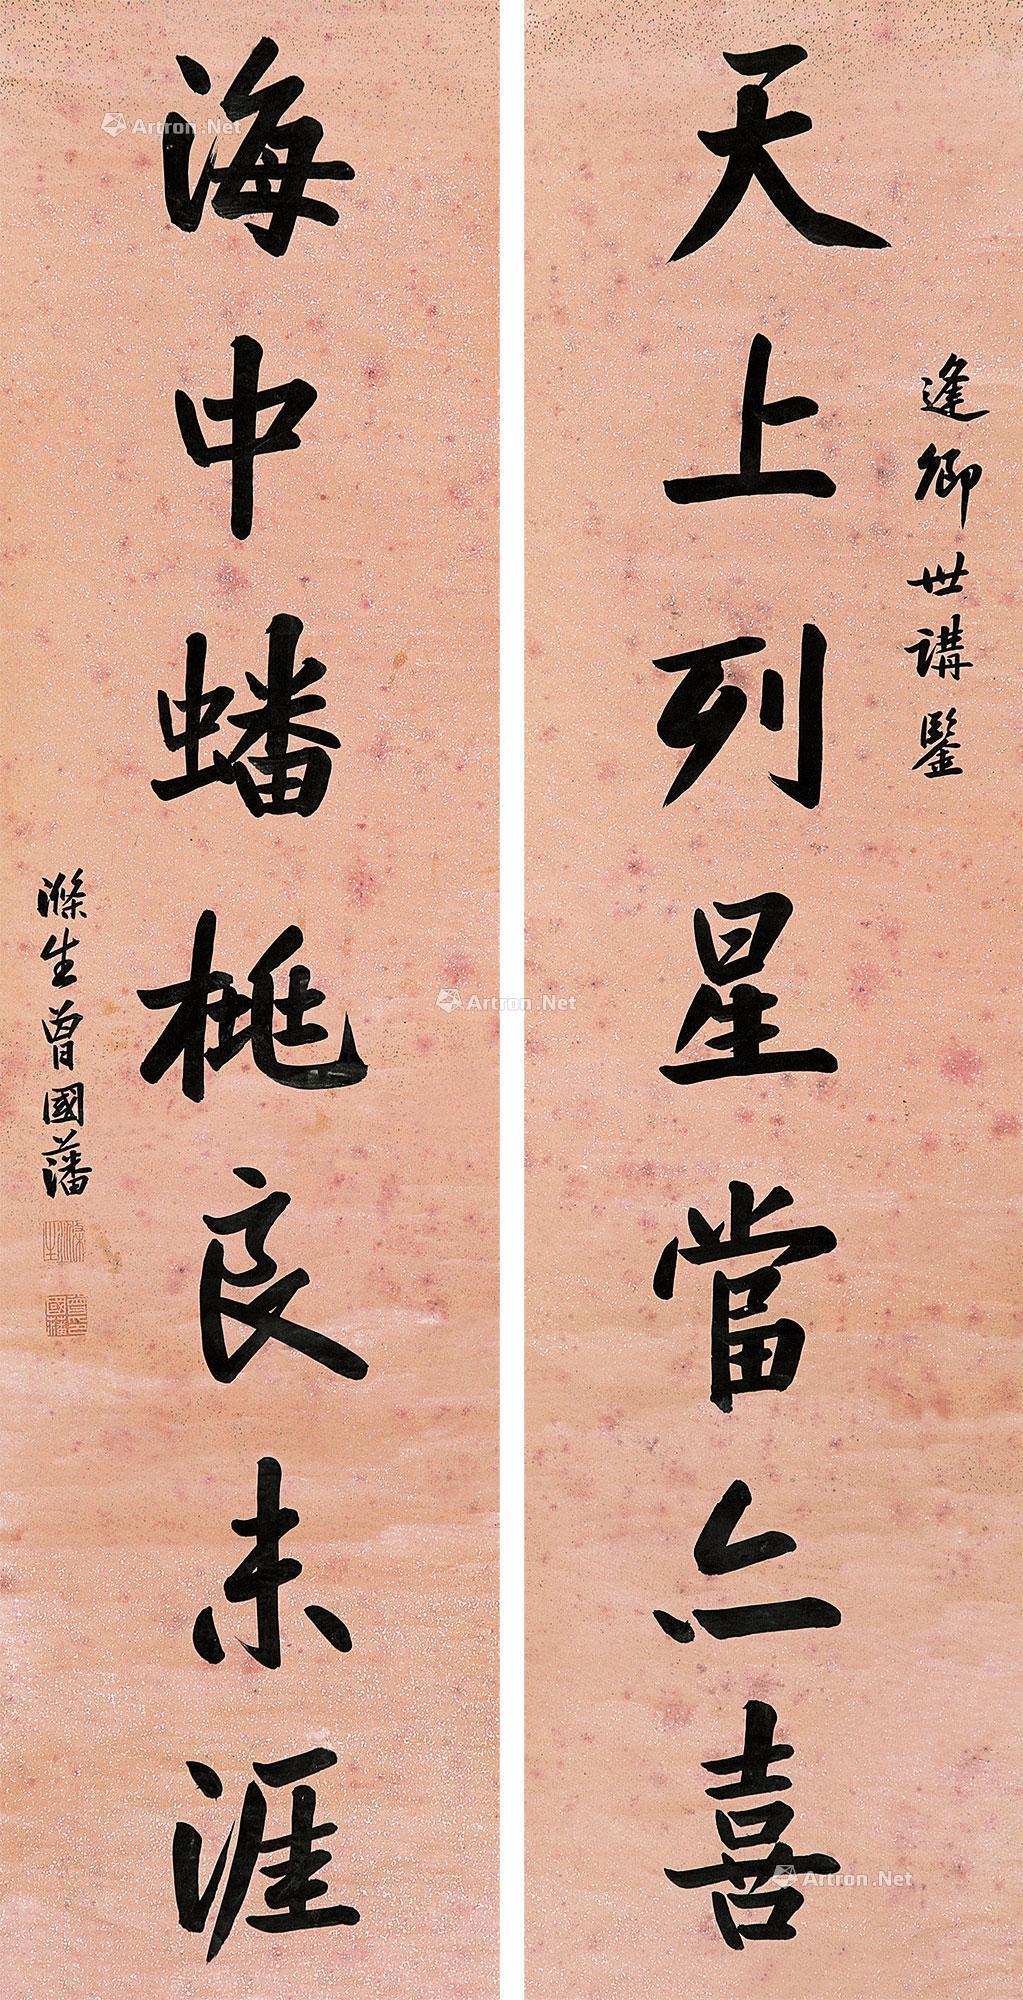 逢卿世講鑒
天上列星當亦喜
海中蟠桃良未涯
滌生曾國藩
滌生
曾國藩印
Artron.Net
Artron.Net
Artron.Net